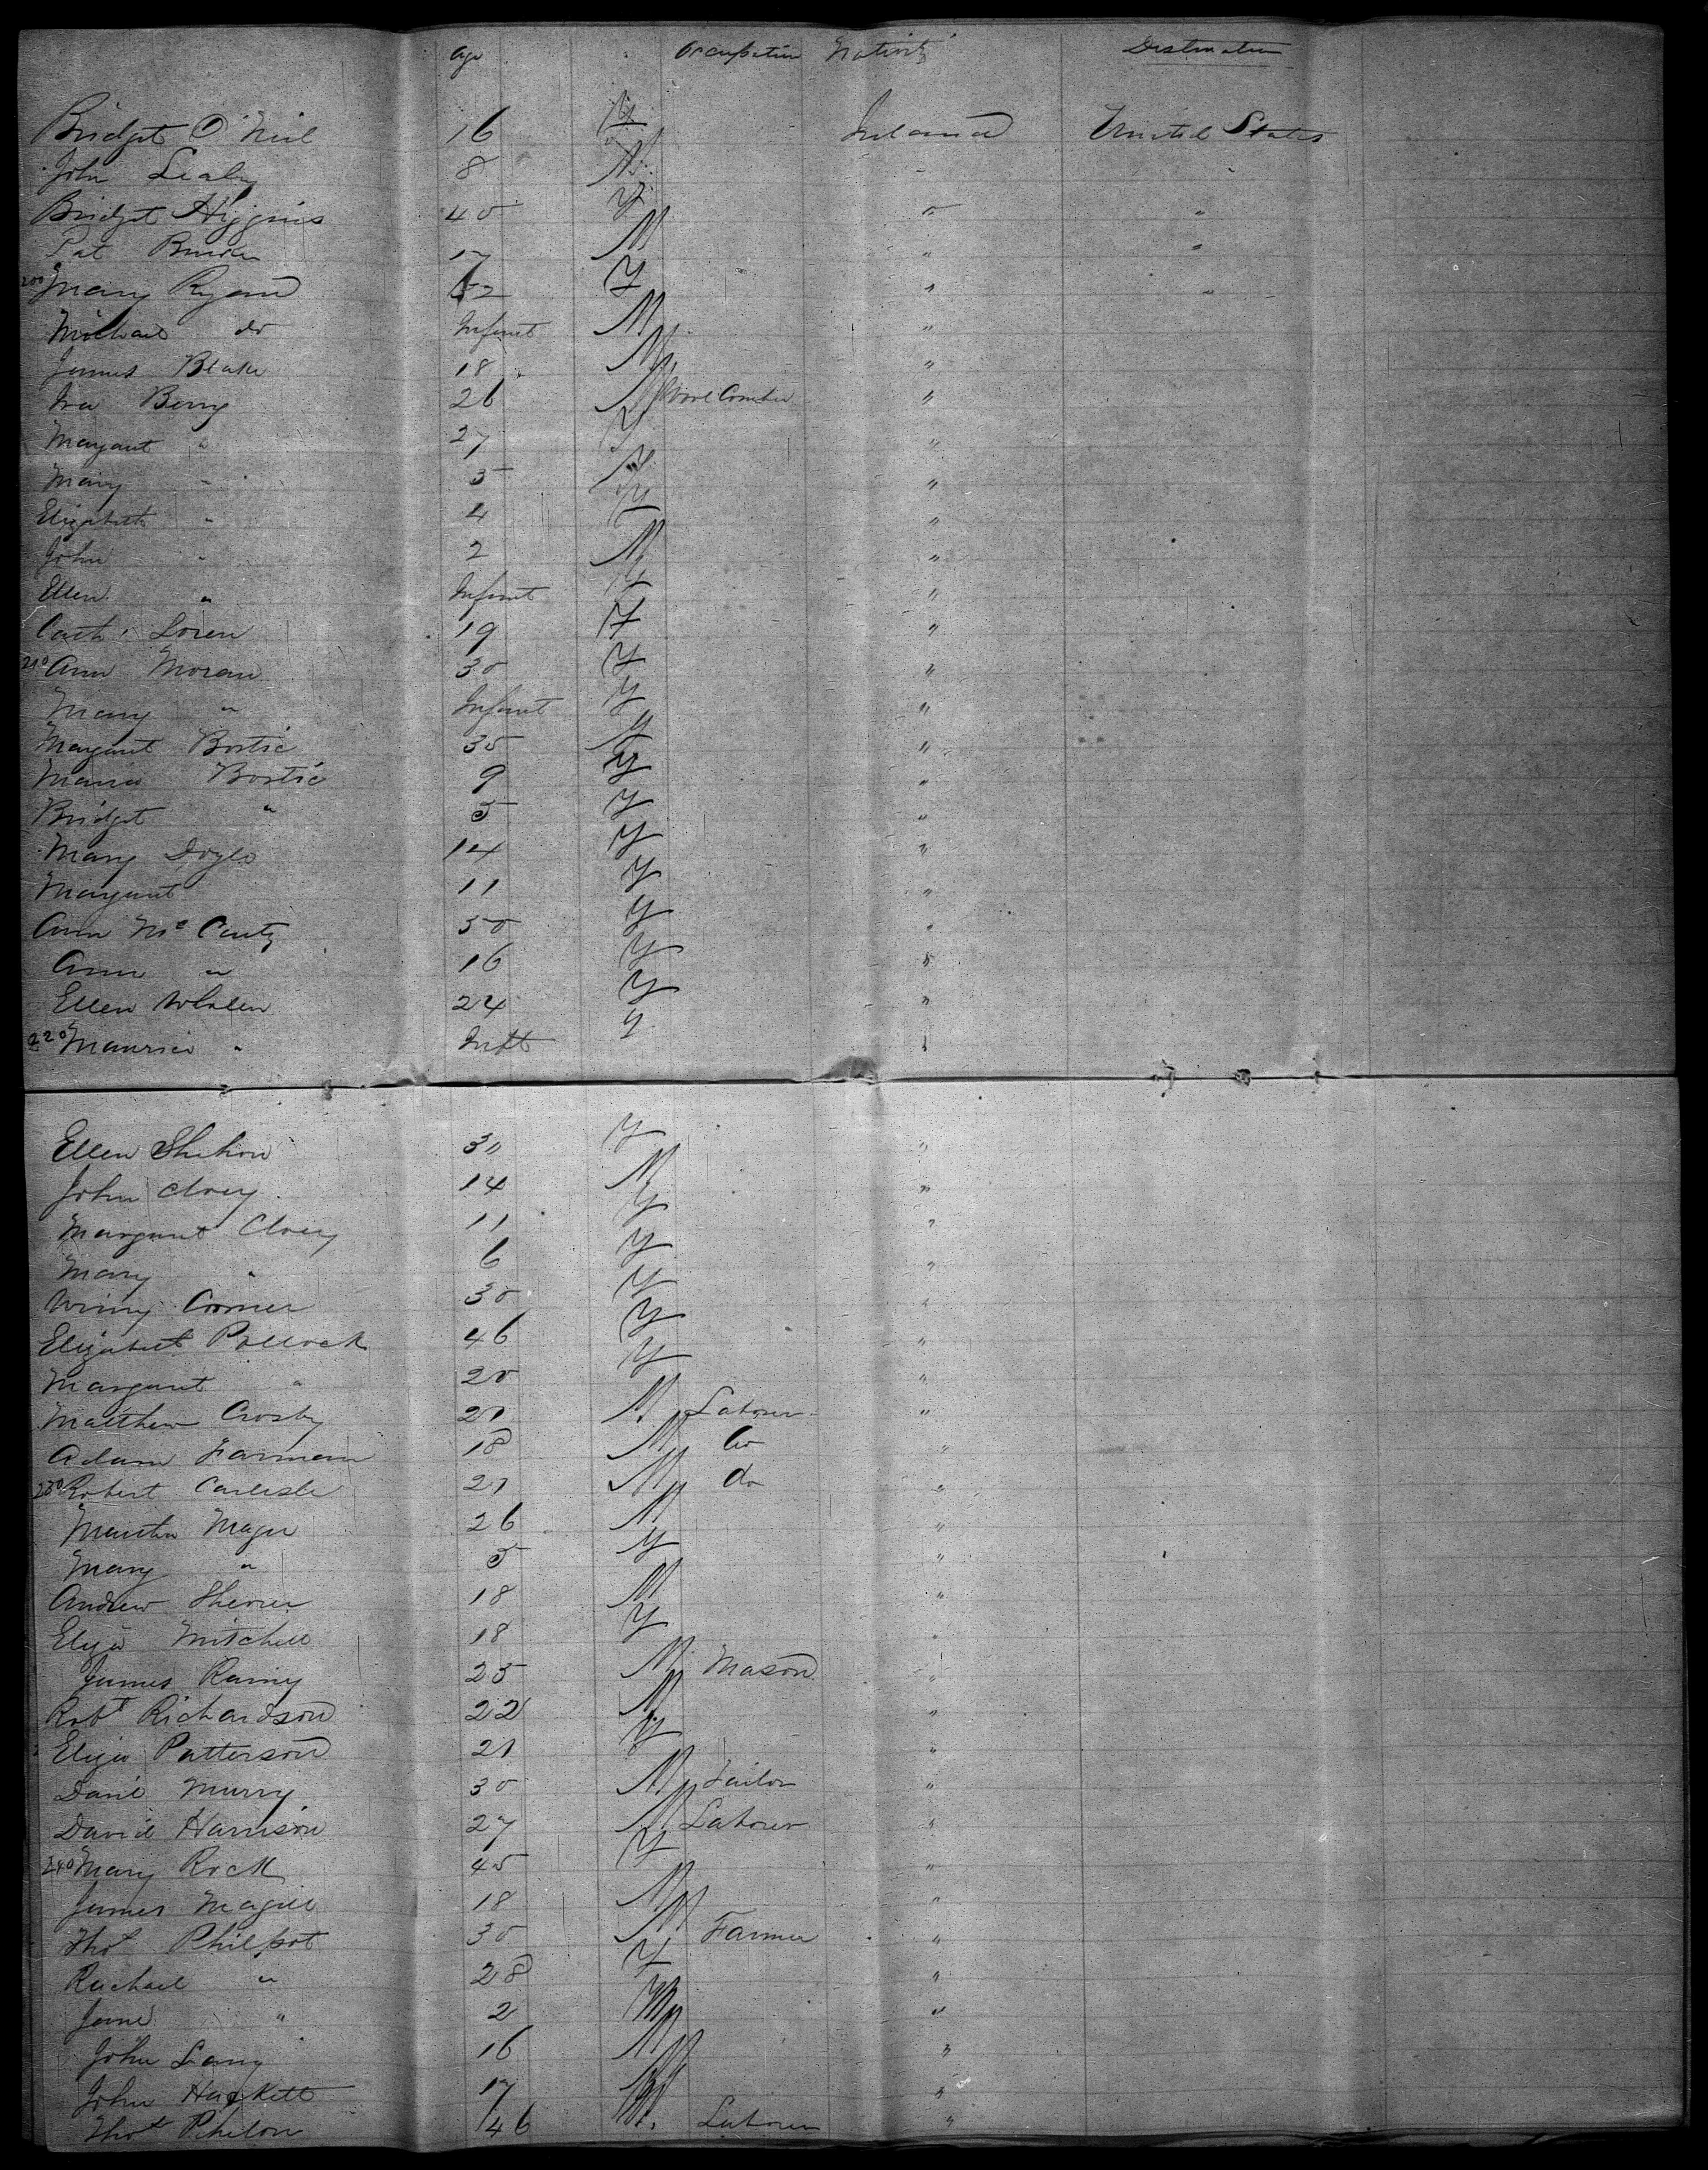 Age Occupation Nativity Destination
Bridget O'Neil 16 F Ireland United States
John Leahy 8 M " "
Bridget Higgins 40 F " "
Pat Burke 17 M " "
200 Mary Ryan F " "
Michael do Infant M "
James Blake 18 M "
Ira Berry 26 M Wool Comber "
Margaret " 27 F "
Mary " 5 F "
Elizabeth " 4 F "
John " 2 M "
Ellen " Infant F "
Cath. Loren 19 F "
210 Ann Moran 30 F "
Mary " Infant F "
Margaret Bostic 35 F "
Maria Bostic 9 F "
Bridget " 5 F "
Mary Doyle 14 F "
Margaret 11 F "
Ann McCarty 50 F "
Ann " 16 F "
Ellen Whalen 24 F "
220 Maurice " Inft F "
Ellen Shehan 30 F "
John Cloey 14 M "
Margaret Cloey 11 F "
Mary " 6 F "
Winny Connor 30 F "
Elizabeth Pollock 46 F "
Margaret " 20 F "
Matthew Crosby 21 M Laborer "
Adam Farman 18 M do "
230 Robert Carlisle 21 M do "
Martin Mager 26 M "
Mary " 5 F "
Andrew Sherrer 18 M "
Eliza Mitchell 18 F "
James Rainy 25 M Mason "
Robt Richardson 22 M "
Eliza Patterson 21 F "
Danl Murry 30 M Tailor "
David Harrison 27 M Laborer "
240 Mary Rock 45 F "
James Magill 18 M "
Thos Philpot 30 M Farmer "
Rachael " 28 F "
Jane " 2 "
John Lang 16 M "
John Hackett 17 M "
Thos Phelon 46 M. Laborer "